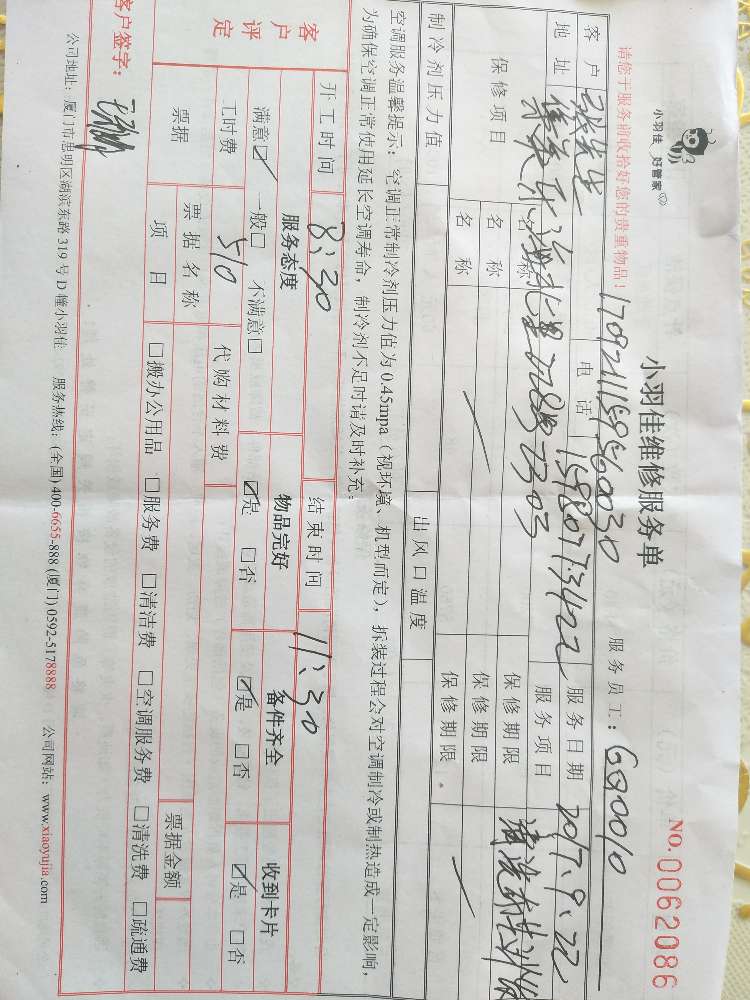 小羽佳 好管家
小羽佳维修服务单
NO.0062086
请您于服务前收拾好您的贵重物品!
服务员工: 680010
客户 电话 15980973422 服务日期 2017.9.22
地址 服务项目
保修项目 名称 保修期限
名称 保修期限
名称 保修期限
制冷剂压力值 出风口温度
空调服务温馨提示: 空调正常制冷剂压力值为0.45mpa (视环境、机型而定), 拆装过程会对空调制冷或制热造成一定影响,
为确保空调正常使用延长空调寿命, 制冷剂不足时请及时补充。
开工时间 8:30 结束时间 11:30
客户评定 服务态度 物品完好 备件齐全 收到卡片
满意☑ 一般☐ 不满意☐ ☑是 ☐否 ☑是 ☐否 ☑是 ☐否
工时费 510 代购材料费
票据 票据名称 票据金额
项目 ☐搬办公用品 ☐服务费 ☐清洁费 ☐空调服务费 ☐清洗费 ☐疏通费
客户签字:
公司地址: 厦门市思明区湖滨东路319号D幢小羽佳 服务热线: (全国) 400-6655-888 (厦门) 0592-5178888 公司网站: www.xiaoyujia.com